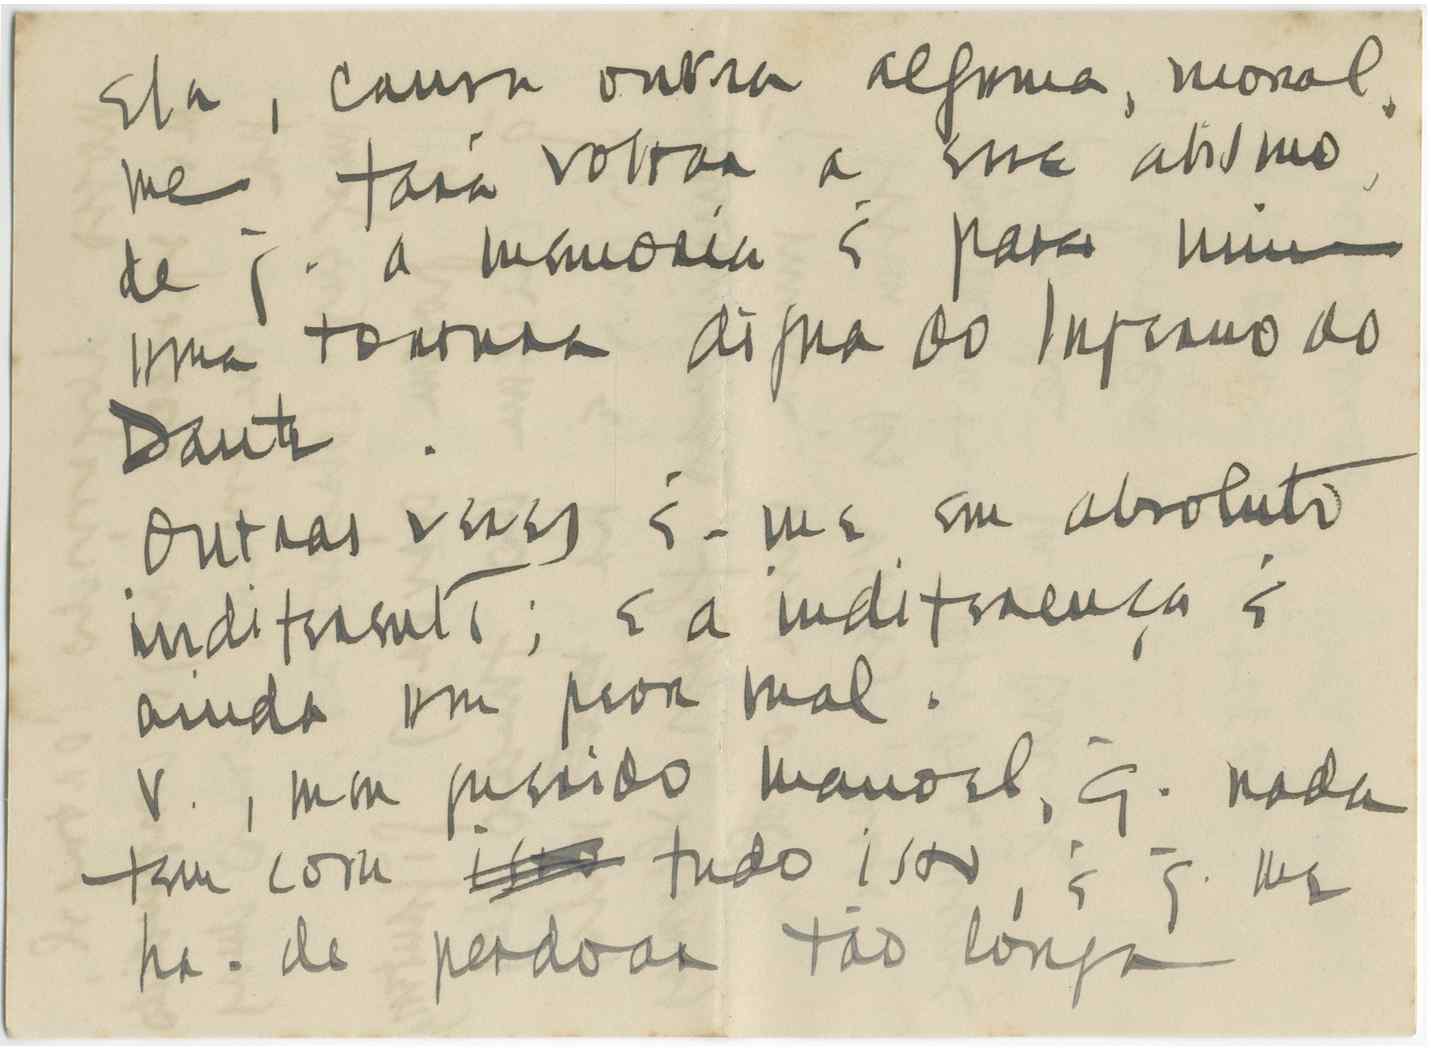 ela, causa outra alguma, moral,
me fará voltar a esse abismo,
de q̄. a memoria é para mim
uma tortura digna do Inferno do
Dante.
Outras vezes é-me em absoluto
indiferente; e a indiferença é
ainda um peor mal.
V., meu querido Manoel, q̄. nada
tem com isso tudo isso, é q̄. me
ha-de perdoar tão longa